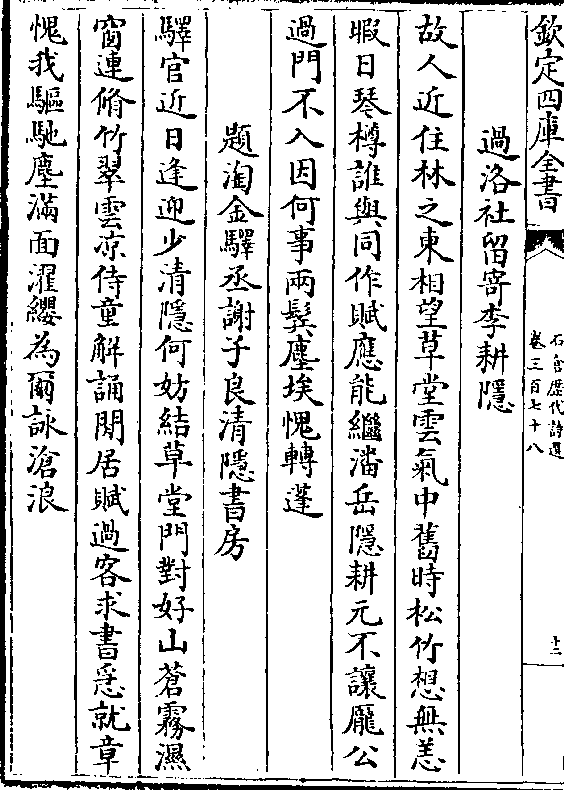 欽定四庫全書
石倉歷代詩選
卷三百七十八
十二
過洛社留寄李耕隱
故人近住林之東相望草堂雲氣中舊時松竹想無恙
暇日琴樽誰與同作賦應能繼潘岳隱耕元不讓龎公
過門不入因何事兩鬂塵埃愧轉蓬
題淘金驛丞謝子良清隱書房
驛官近日逢迎少清隱何妨結草堂門對好山蒼霧濕
窗連脩竹翠雲凉侍童解誦閒居賦過客求書急就章
愧我驅馳塵滿面濯纓為爾詠滄浪